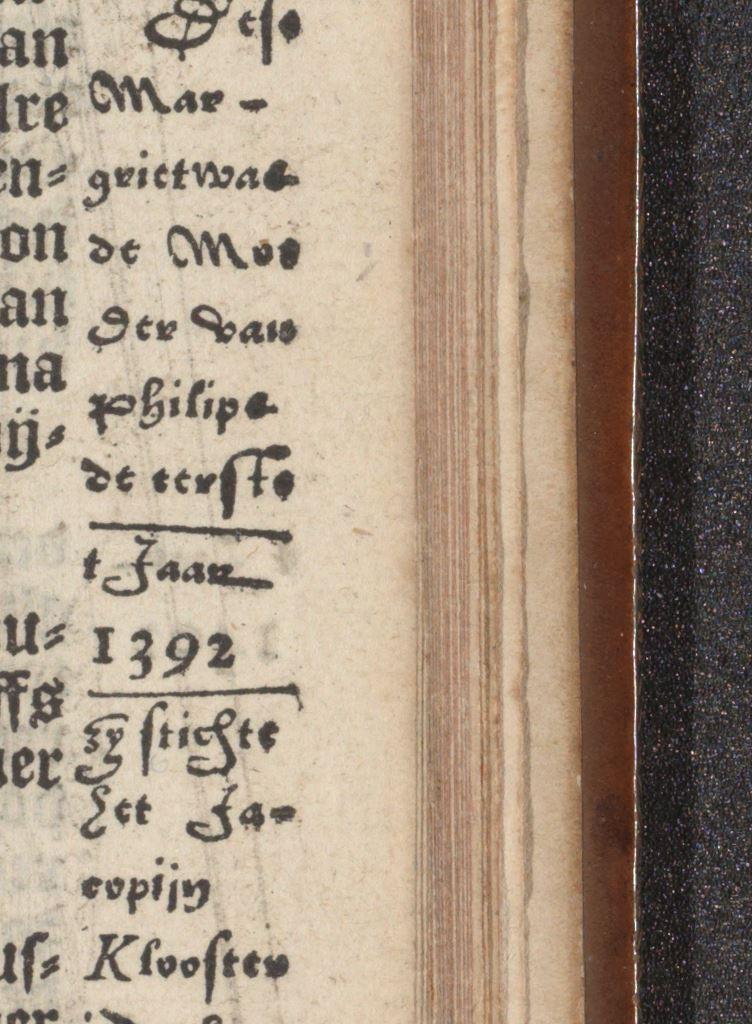 an
lre
en-
on
an
na
ij-
u-
ffs
er
us-
Dese
Mar -
grietwas
de Moe
der van
Philips
de eerste
t Jaar
1392
zy stichte
het Ja-
copijn
Klooster